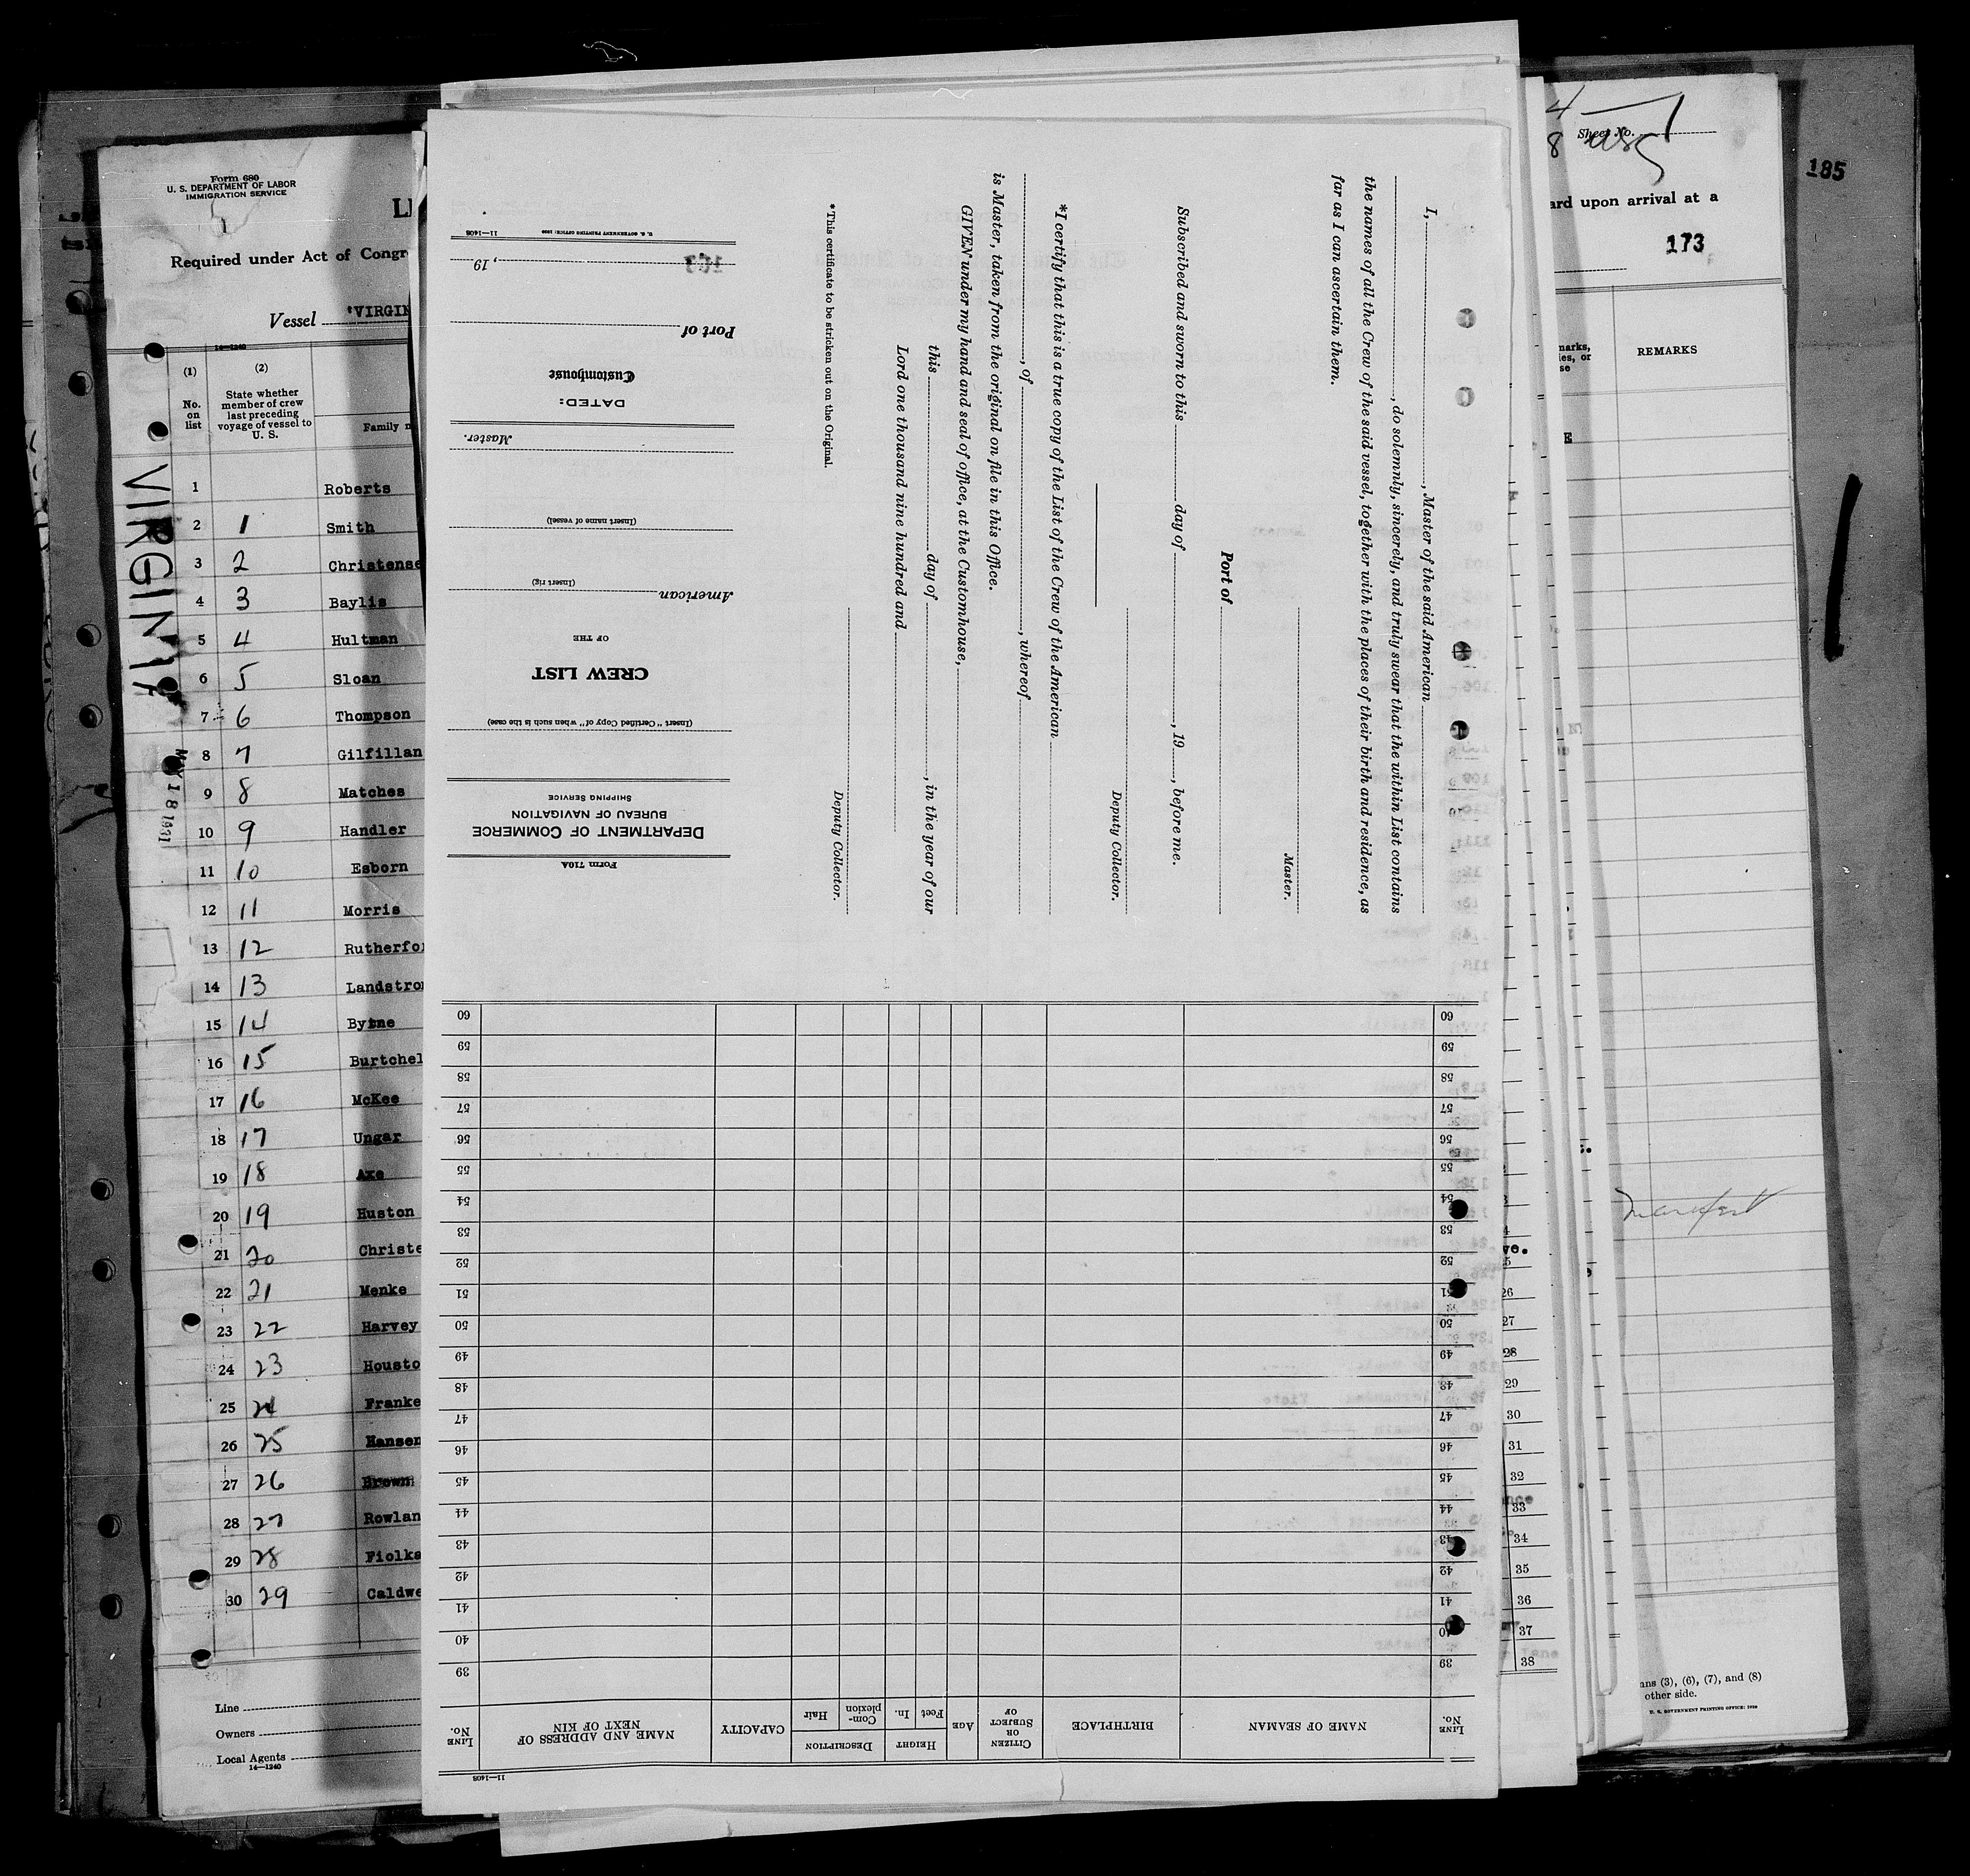 Form 680
U. S. DEPARTMENT OF LABOR
IMMIGRATION SERVICE
LI
Required under Act of Congr
Vessel 'VIRGIN
14—1240
(1) (2)
No. on list
State whether member of crew last preceding voyage of vessel to U. S.
Family n
1 Roberts
2 1 Smith
3 2 Christense
4 3 Baylis
5 4 Hultman
6 5 Sloan
7 6 Thompson
8 7 Gilfillan
9 8 Matches
10 9 Handler
11 10 Esborn
12 11 Morris
13 12 Rutherfo
14 13 Landstro
15 14 Byrne
16 15 Burtchel
17 16 McKee
18 17 Ungar
19 18 Axe
20 19 Huston
21 20 Christe
22 21 Menke
23 22 Harvey
24 23 Housto
25 24 Franke
26 25 Hansen
27 26 Brown
28 27 Rowlan
29 28 Fiolka
30 29 Caldwe
Line
Owners
Local Agents
14—1240
VIRGINIA
MAY 18 1931
Form 710A
DEPARTMENT OF COMMERCE
BUREAU OF NAVIGATION
SHIPPING SERVICE
(Insert "Certified Copy of" when such is the case)
CREW LIST
OF THE
American
(Insert rig)
(Insert name of vessel)
Master.
DATED:
Customhouse
Port of
, 19
U. S. GOVERNMENT PRINTING OFFICE: 1930 11—1408
I, , Master of the said American
, do solemnly, sincerely, and truly swear that the within List contains
the names of all the Crew of the said vessel, together with the places of their birth and residence, as
far as I can ascertain them.
Master.
Port of
Subscribed and sworn to this day of , 19 , before me.
Deputy Collector.
*I certify that this is a true copy of the List of the Crew of the American
, of , whereof
is Master, taken from the original on file in this Office.
GIVEN under my hand and seal of office, at the Customhouse,
this day of , in the year of our
Lord one thousand nine hundred and
Deputy Collector.
*This certificate to be stricken out on the Original.
11—1408
LINE No.
NAME OF SEAMAN
BIRTHPLACE
CITIZEN OR SUBJECT OF
AGE
HEIGHT
Feet In.
DESCRIPTION
Complexion Hair
CAPACITY
NAME AND ADDRESS OF NEXT OF KIN
LINE No.
39 39
40 40
41 41
42 42
43 43
44 44
45 45
46 46
47 47
48 48
49 49
50 50
51 51
52 52
53 53
54 54
55 55
56 56
57 57
58 58
59 59
60 60
26
27
28
29
30
31
32
33
34
35
36
37
38
ve.
4
8
Sheet No.
ard upon arrival at a
173
185
REMARKS
manifest
ns (3), (6), (7), and (8)
other side.
U. S. GOVERNMENT PRINTING OFFICE: 1929